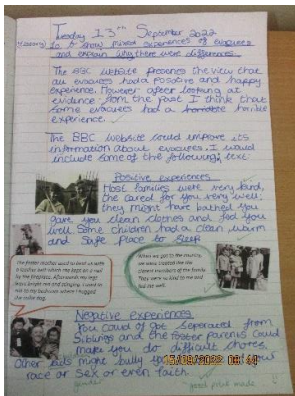 Tuesday 13th September 2022
To show mixed experiences of evacuees
and explain why there were differences
The BBC website presents the view that
all evacuees had a positive and happy
experience. However after looking at
evidence from the past I think that
some evacuees had a horrible
experience.
The BBC website could improve its
information about evacuees. I would
include some of the following text:
Positive experiences
Host families were very kind,
the cared for you very well;
they might have bathed you
gave you clean clothes and fed you
well. Some children had a clean, warm
and safe place to sleep
The foster mother used to beat us with
a leather belt which she kept on a nail
by the fireplace. Afterwards my legs
When we got to the country,
we were treated like
members of the family.
They were so kind to me and
Negative experiences
You could of got separated from
siblings and the foster parents could
make you do difficult chores.
Other kids might bully you
race or sex or even faith.
gender
good point made
15/09/2022